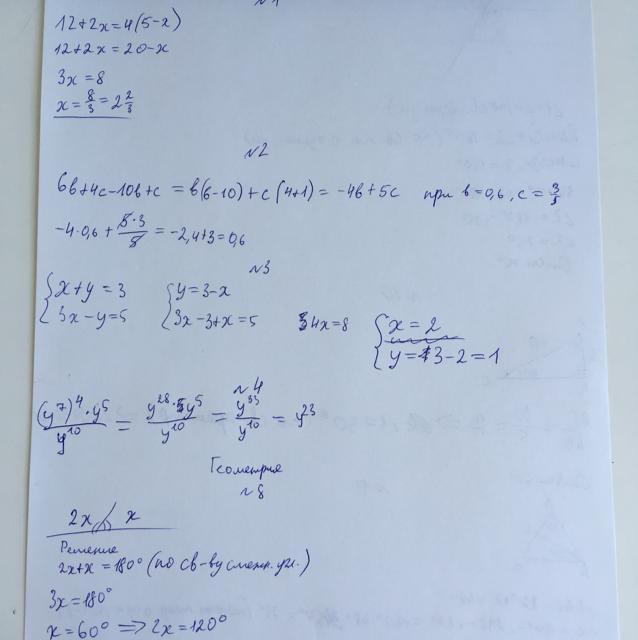 N1
12+2x=4(5-x)
12+2x=20-x
3x=8
x=8/3=2 2/3
N2
6в+4с-10в+с = в(6-10)+с(4+1)= -4в+5с при в=0,6, с=3/5
-4·0,6+5·3/5=-2,4+3=0,6
N3
{x+y=3 {y=3-x
{3x-y=5 {3x-3+x=5 4x=8 {x=2
{y=3-2=1
N4
(y⁷)⁴·y⁵/y¹⁰ = y²⁸·y⁵/y¹⁰ = y³³/y¹⁰ = y²³
Геометрия
N8
2x x
Решение
2x+x=180° (по св-ву смежн. уг.)
3x=180°
x=60° ⇒ 2x=120°